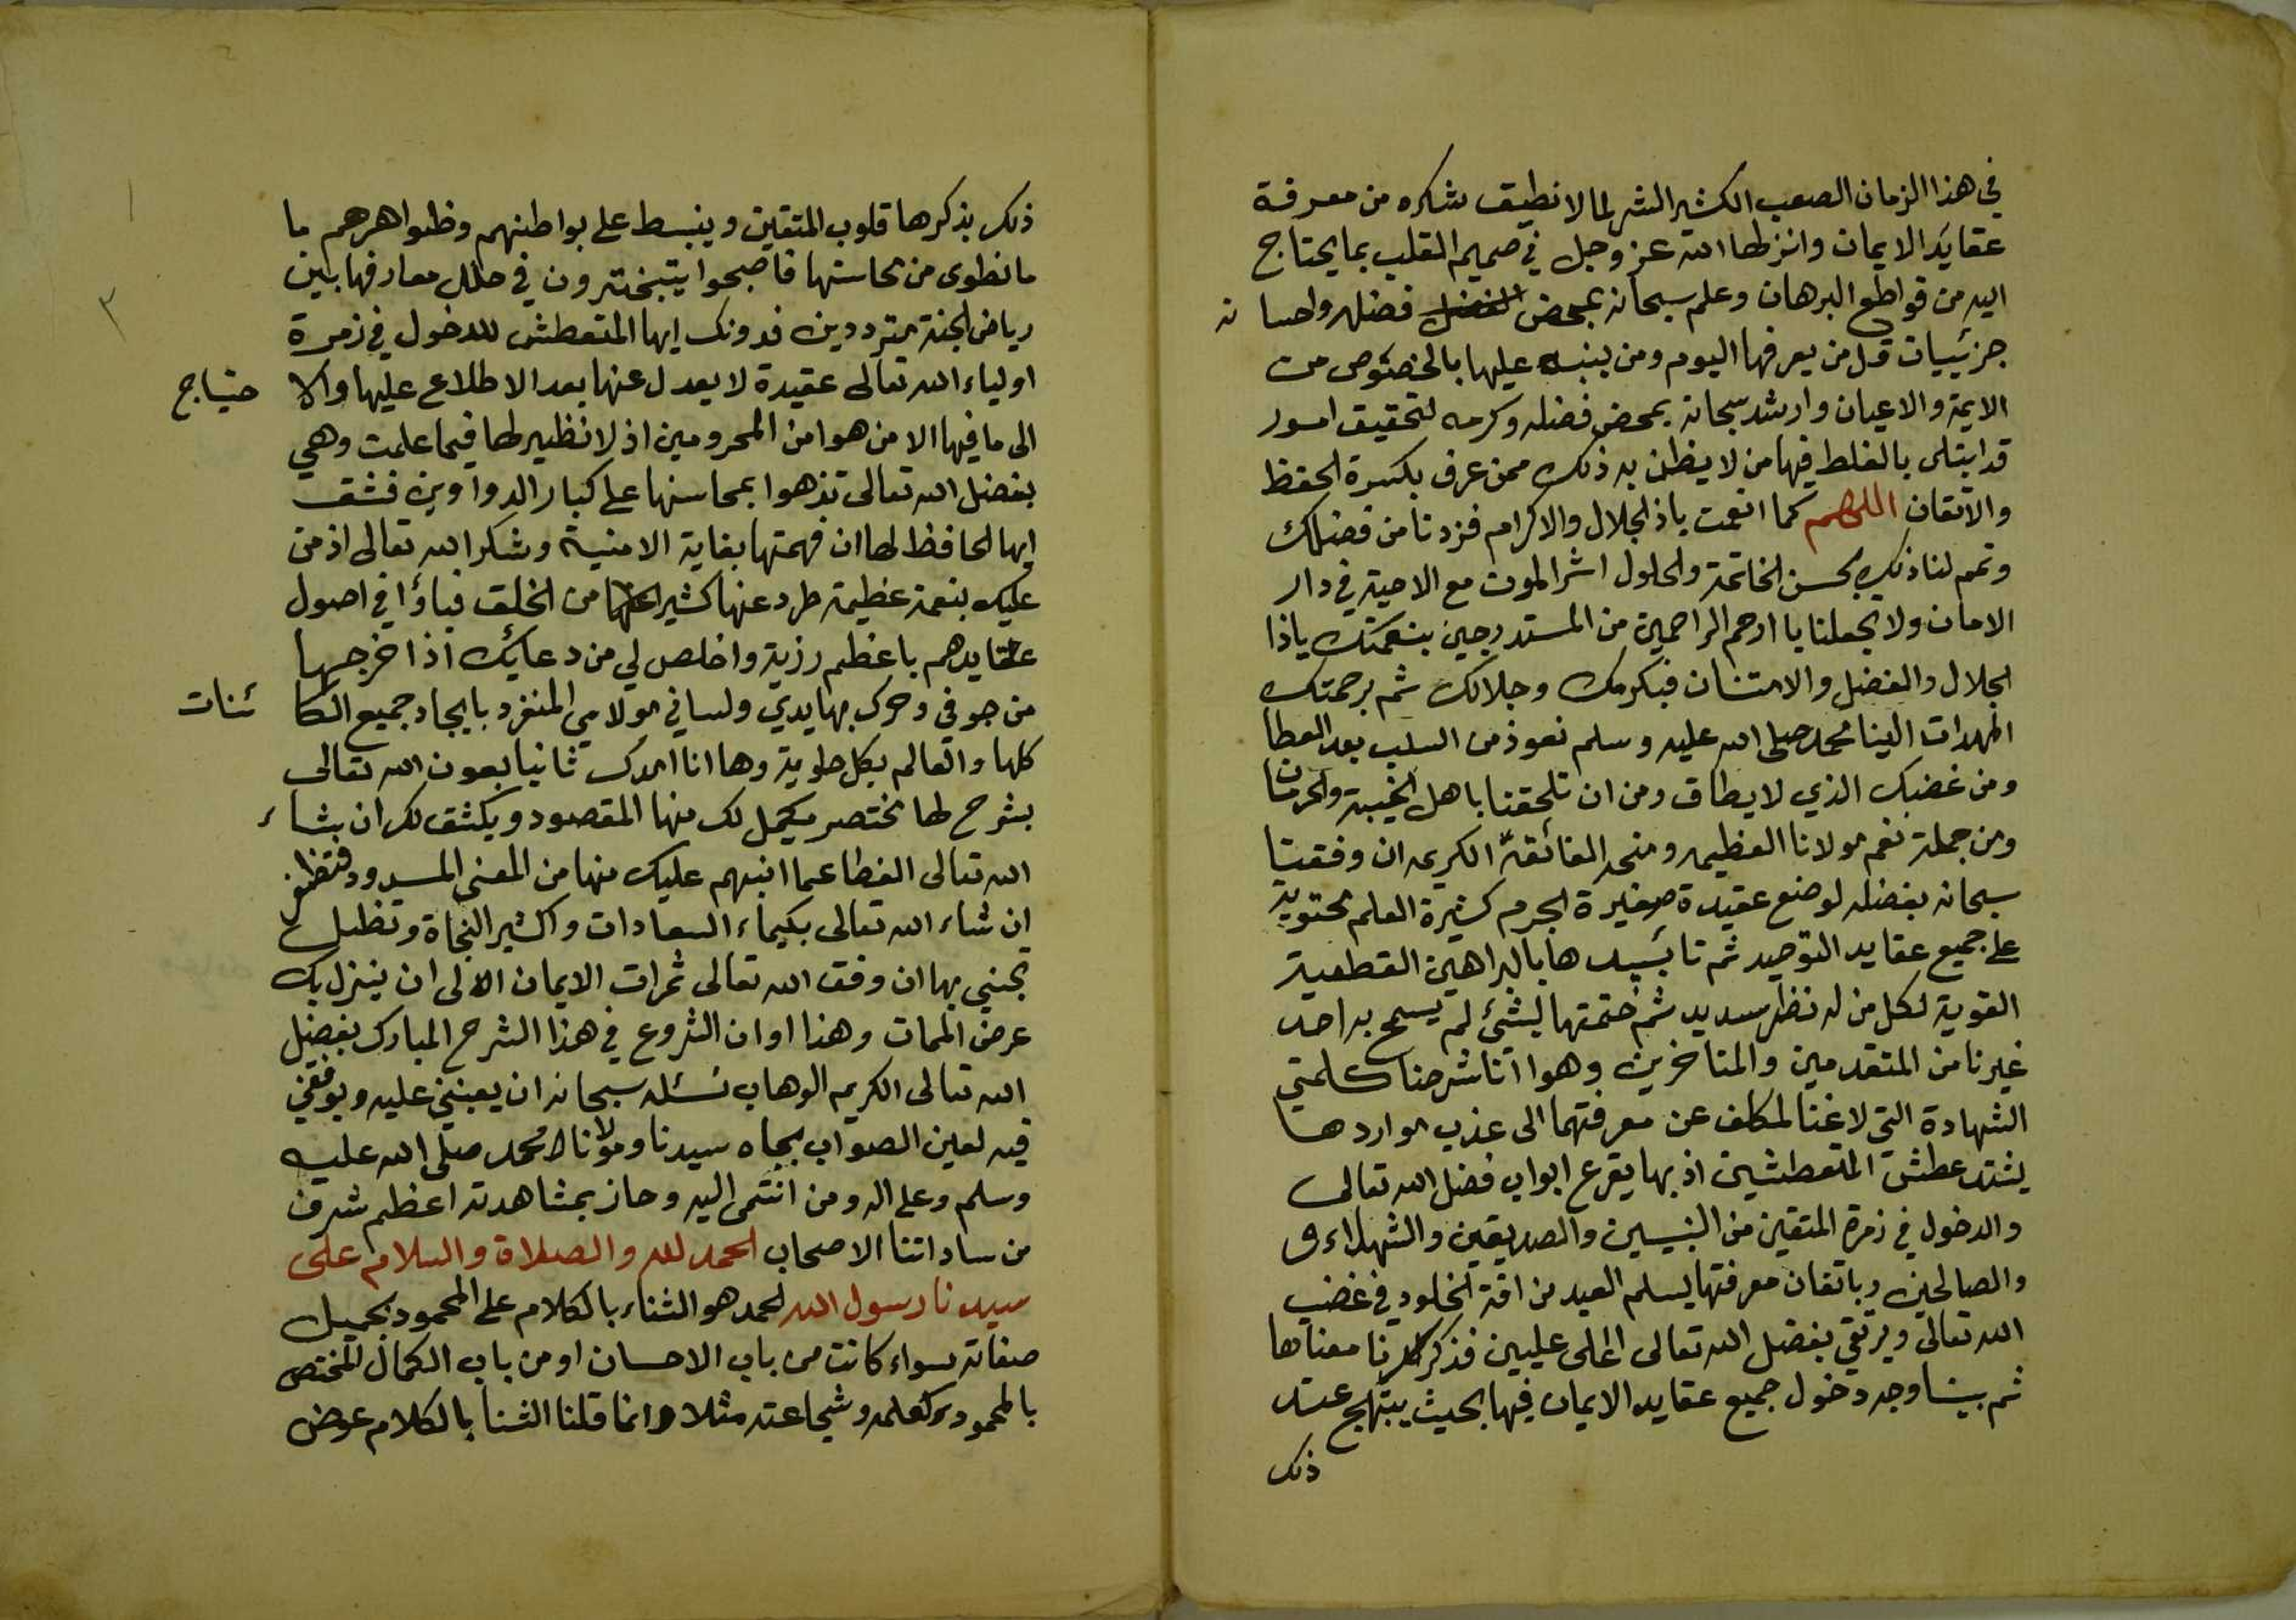 في هذا الزمان الصعب الكثير الشر لما لا نطيق شكره من معرفة
عقايد الايمان وانزلها الله عز وجل في صميم القلب بما يحتاج
اليه من قواطع البرهان وعلم سبحانه بمحض فضله واحسا نه
جزئييات قل من يعرفها اليوم ومن ينبه عليها بالخصوص من
الايمة والاعيان وارشد سبحانه بمحض فضله وكرمه لتحقيق امور
قد ابتلى بالغلط فيها من لا يظن به ذلك ممن عرف بكثرة الحفظ
والاتقان اللهم كما انعمت ياذا الجلال والاكرام فزدنا من فضلك
وتمم لنا ذلك بحسن الخاتمة والحلول اثر الموت مع الاحبة في دار
الامان ولا تجعلنا يا ارحم الراحمين من المستدرجين بنعمتك ياذا
الجلال والفضل والامتنان فبكرمك وجلالك ثم برحمتك
المهدات الينا محمد صلى الله عليه وسلم نعوذ من السلب بعد العطا
ومن غضبك الذي لا يطاق ومن ان تلحقنا باهل الخيبة والحرمان
ومن جملة نعم مولانا العظيمه ومنحه الفائقة الكريمه ان وفقنا
سبحانه بفضله لوضع عقيدة صغيرة الجرم كثيرة العلم محتوية
على جميع عقايد التوحيد ثم تائييدها بالبراهين القطعية
القوية لكل من له نظر سديد ثم ختمتها بشئ لم يسمح به احد
غيرنا من المتقدمين والمتاخرين وهو اننا شرحنا كلمتي
الشهادة التي لا غنا لمكلف عن معرفتهما الى عذب مواردها
يشتد عطش المتعطشين اذ بها يقرع ابواب فضل الله تعالى
والدخول في زمرة المتقين من النبيين والصديقين والشهداء و
والصالحين وباتقان معرفتها يسلم العبد من افة الخلود في غضب
الله تعالى ويرتقي بفضل الله تعالى اعلى عليين فذكرنا معناها
ثم بينا وجه دخول جميع عقايد الايمان فيها بحيث يبتهج عند
ذلك
ذلك بذكرها قلوب المتقين وينبسط على بواطنهم وظواهرهم ما
ما نطوى من محاسنها فاصبحوا يتبخترون في حلل معارفها بين
رياض الجنة مترددين فدونك ايها المتعطش للدخول في زمرة
اولياء الله تعالى عقيدة لا يعدل عنها بعد الاطلاع عليها والا حتياج
الى ما فيها الا من هو من المحرومين اذ لا نظير لها فيما علمت وهي
بفضل الله تعالى تزهوا بمحاسنها على كبار الدواوين فثق
ايها الحافظ لها ان فهمتها بغاية الامنية وشكرا لله تعالى اذ من
عليك بنعمة عظيمة طرد عنها كثيرا من الخلق فباؤا في اصول
عقايدهم باعظم رزية واخلص لي من دعايك اذا خرجها
من جوفي وحرك بها يدي ولساني مولاي المنفرد بايجاد جميع الكا ئنات
كلها والعالم بكل طوية وها انا امدك ثانيا بعون الله تعالى
بشرح لها مختصر يكمل لك منها المقصود ويكشف لك ان شاء
الله تعالى الغطا عما انبهم عليك منها من المعنى المسدود فتظفر
ان شاء الله تعالى بكيماء السعادات واكثير النجاة وتظل
تجني بها ان وفق الله تعالى ثمرات الايمان الى ان ينزل بك
عرض الممات وهذا اوان الشروع في هذا الشرح المبارك بفضل
الله تعالى الكريم الوهاب نسئله سبحانه ان يعينني عليه ويوفقني
فيه لعين الصواب بجاه سيدنا ومولانا محمد صلى الله عليه
وسلم وعلى اله ومن انتمى اليه وحاز بمشاهدته اعظم شرف
من ساداتنا الاصحاب الحمد لله والصلاة والسلام على
سيدنا رسول الله الحمد هو الثناء بالكلام على المحمود بجميل
صفاته سواء كانت من باب الاحسان او من باب الكمال المختص
بالمحمود كعلمه وشجاعته مثلا وانما قلنا الثنا بالكلام عوض